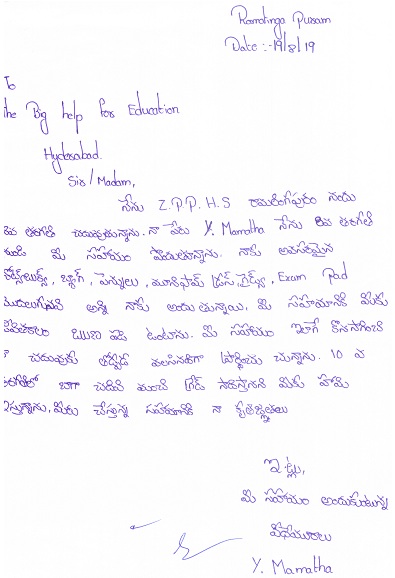 Ramalinga Puram
Date :- 19/8/19
To
the Big help for Education
Hyderabad.
Sir/Madam,
నేను Z.P.P.H.S రామలింగపురం నందు
తరగతి చదువుచున్నాను. నా పేరు Y. Mamatha నేను 6వ తరగతి
నుండి మీ సహాయం పొందుతున్నాను. నాకు అవసరమైన
నోట్స్‌బుక్స్, బ్యాగ్, పెన్నులు, యూనిఫామ్ డ్రెస్, Exam Pad
మొదలుగునవి అన్ని నాకు అందుతున్నాయి. మీ సహాయానికి మీకు
ఋణపడి ఉంటాను. మీ సహాయం ఇలాగే కొనసాగించి
నా చదువుకు తోడ్పడ వలసినదిగా ప్రార్థించు చున్నాను. 10 వ
తరగతిలో బాగా చదివి మంచి గ్రేడ్ సాధిస్తానని మీకు హామి
ఇస్తున్నాను. మీరు చేస్తున్న సహాయానికి నా కృతజ్ఞతలు
ఇట్లు,
మీ సహాయం అందుకుంటున్న
విధేయురాలు
Y. Mamatha